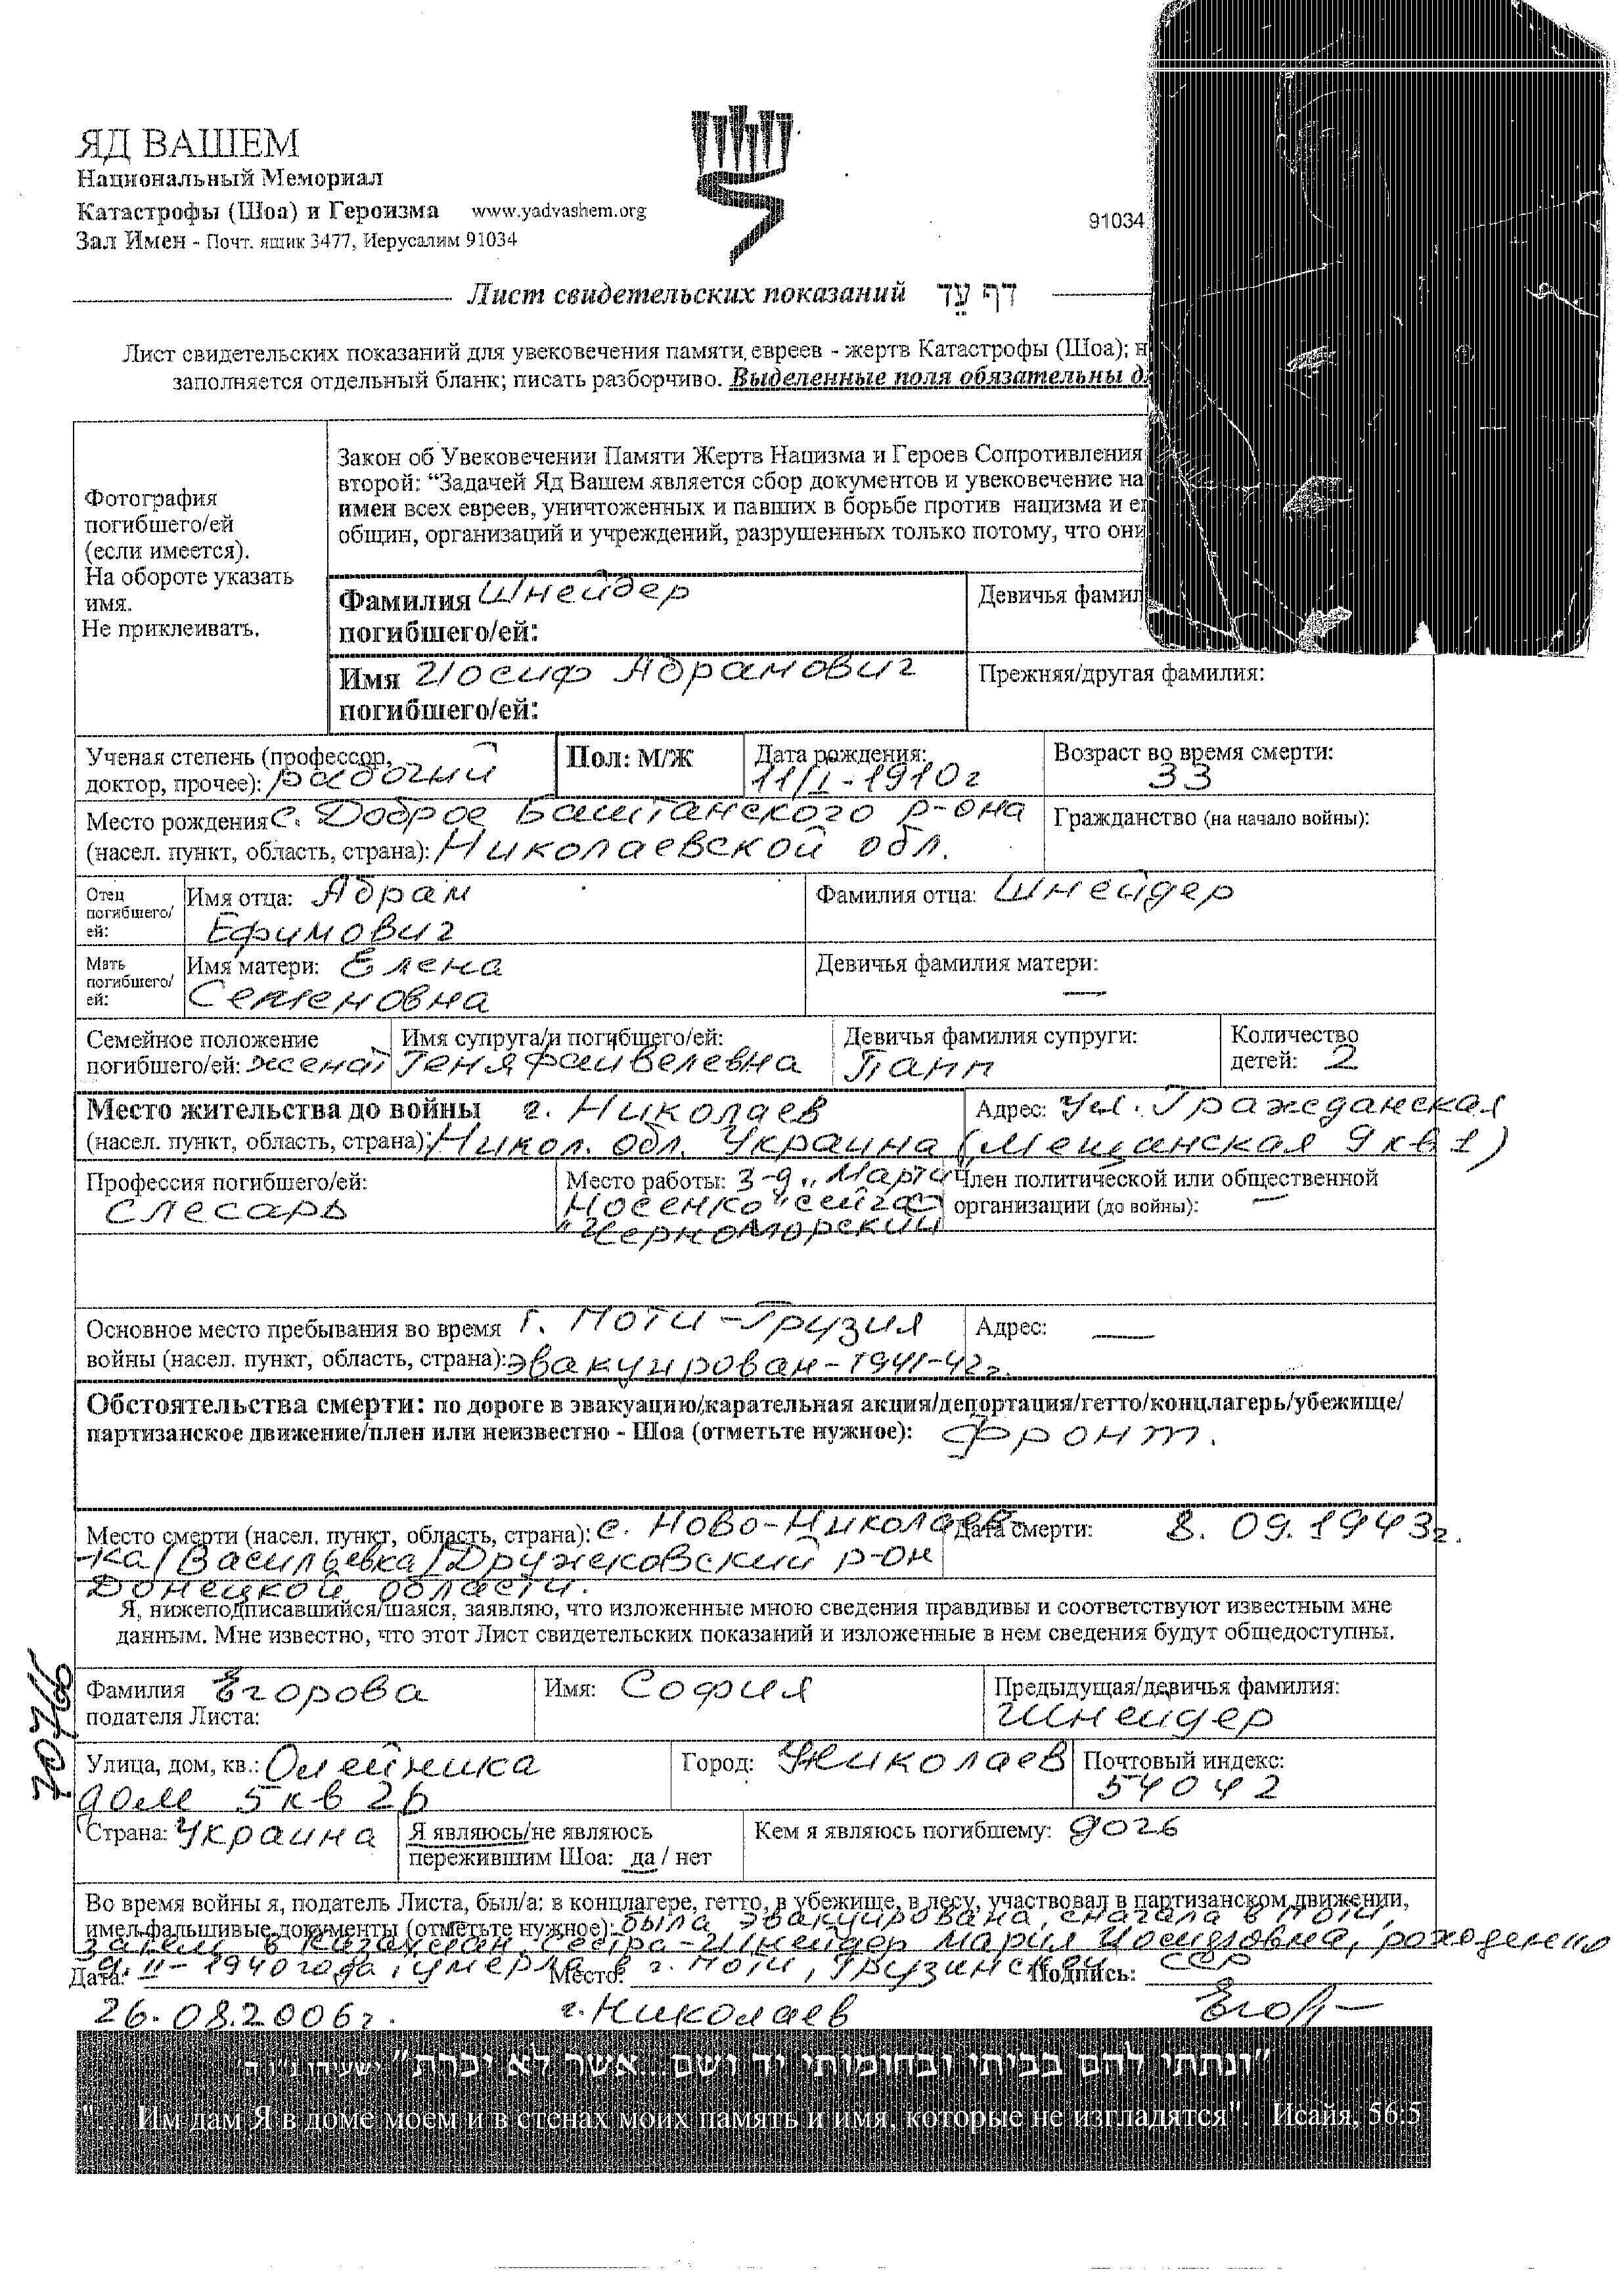 ЯД ВАШЕМ
Национальный Мемориал
Катастрофы (Шоа) и Героизма www.yadvashem.org
Зал Имен - Почт. ящик 3477, Иерусалим 91034
91034
Лист свидетельских показаний דף עֵד
Лист свидетельских показаний для увековечения памяти евреев - жертв Катастрофы (Шоа); н
заполняется отдельный бланк; писать разборчиво. Выделенные поля обязательны д
Фотография
погибшего/ей
(если имеется).
На обороте указать
имя.
Не приклеивать.
Закон об Увековечении Памяти Жертв Нацизма и Героев Сопротивления
второй: “Задачей Яд Вашем является сбор документов и увековечение на
имен всех евреев, уничтоженных и павших в борьбе против нацизма и е
общин, организаций и учреждений, разрушенных только потому, что они
Фамилия Шнейдер
погибшего/ей:
Девичья фамил
Имя Иосиф Абрамович
погибшего/ей:
Прежняя/другая фамилия:
Ученая степень (профессор,
доктор, прочее): рабочий
Пол: М/Ж
Дата рождения:
11/I-1910г
Возраст во время смерти:
33
Место рождения с. Доброе Баштанского р-она
(насел. пункт, область, страна): Николаевской обл.
Гражданство (на начало войны):
Отец
погибшего/
ей:
Имя отца: Абрам
Ефимович
Фамилия отца: Шнейдер
Мать
погибшего/
ей:
Имя матери: Елена
Семеновна
Девичья фамилия матери:
—
Семейное положение
погибшего/ей: женат
Имя супруга/и погибшего/ей:
Геня Файвелевна
Девичья фамилия супруги:
Папп
Количество
детей: 2
Место жительства до войны г. Николаев
(насел. пункт, область, страна): Никол. обл. Украина
Адрес: ул. Гражданская
(Мещанская 9 кв 1)
Профессия погибшего/ей:
Слесарь
Место работы: з-д „Марти
Носенко" сейчас
"Черноморский
Член политической или общественной
организации (до войны): —
Основное место пребывания во время г. Поти - Грузия
войны (насел. пункт, область, страна): эвакуирован-1941-42г.
Адрес: —
Обстоятельства смерти: по дороге в эвакуацию/карательная акция/депортация/гетто/концлагерь/убежище/
партизанское движение/плен или неизвестно - Шоа (отметьте нужное): Фронт.
Место смерти (насел. пункт, область, страна): с. Ново-Николаев-
ка/Васильевка/Дружковский р-он
Донецкой области.
Дата смерти: 8.09.1943г.
Я, нижеподписавшийся/шаяся, заявляю, что изложенные мною сведения правдивы и соответствуют известным мне
данным. Мне известно, что этот Лист свидетельских показаний и изложенные в нем сведения будут общедоступны.
Фамилия Егорова
подателя Листа:
Имя: София
Предыдущая/девичья фамилия:
Шнейдер
Улица, дом, кв.: Олейника
дом 5 кв 26
Город: Николаев
Почтовый индекс:
54042
Страна: Украина
Я являюсь/не являюсь
пережившим Шоа: да / нет
Кем я являюсь погибшему: дочь
Во время войны я, податель Листа, был/а: в концлагере, гетто, в убежище, в лесу, участвовал в партизанском движении,
имел фальшивые документы (отметьте нужное): была эвакуирована сначала в Поти,
затем в Казахстан, сестра-Шнейдер Мария Иосифовна, рождения
9.II-1940 года, умерла в г. Поти, Грузинской ССР
Дата: Место: Подпись:
26.08.2006г. г. Николаев
"ונתתי להם בביתי ובחומותי יד ושם...אשר לא יכרת" ישעיהו נ"ו ה'
"... Им дам Я в доме моем и в стенах моих память и имя, которые не изгладятся". Исайя, 56:5